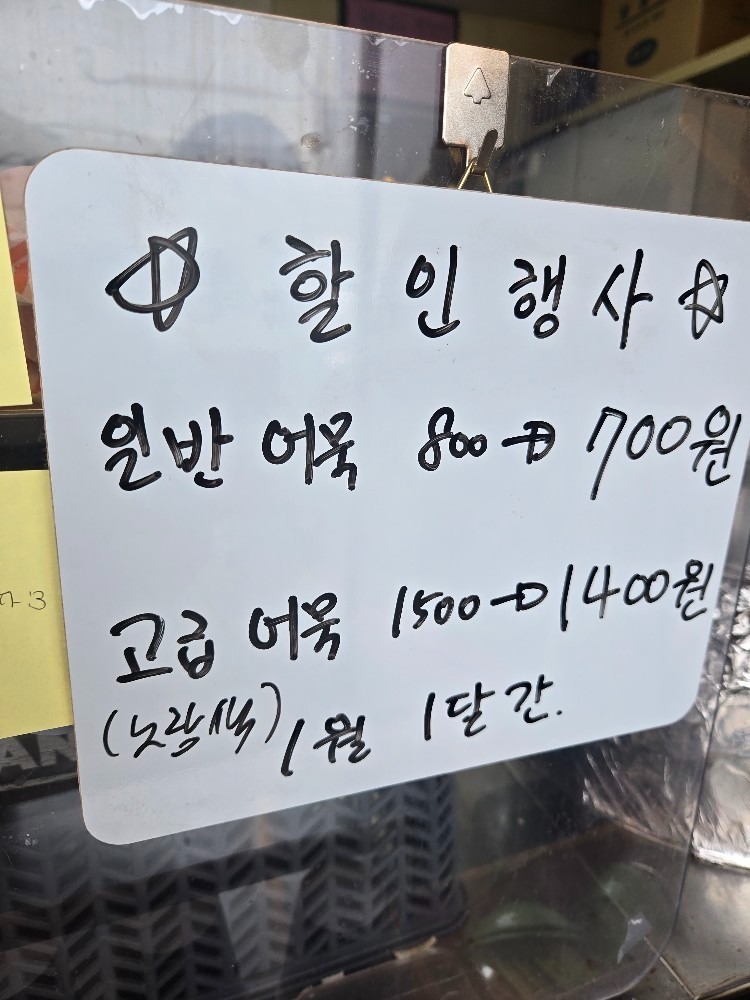 ☆ 할인행사 ☆
일반 어묵 800→700원
고급 어묵 1500→1400원
(노랑색) 1월 1달간.